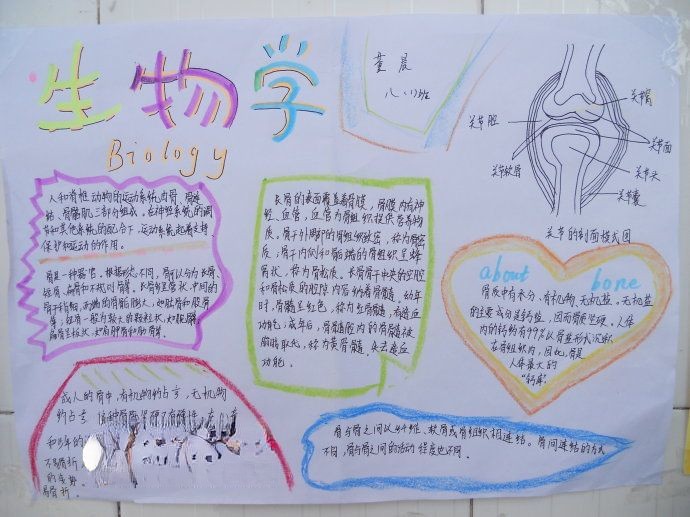 生物学
Biology
童晨
八.(1)班
关节腔
关节软骨
关节面
关节头
关节囊
关节的剖面模式图
人和脊椎动物的运动系统由骨、骨连
结、骨骼肌三部分组成。在神经系统的调
节和其他系统的配合下,运动系统起着支持
保护和运动的作用。
骨是一种器官。根据形态不同,骨可以分为长骨、
短骨、扁骨和不规则骨等。长骨呈长管状,中间的
骨干稍细,两端的骨骺膨大,如肱骨和股骨
等;短骨一般为较小的颗粒状,如腕骨;
扁骨呈板状,如肩胛骨和肋骨等。
长骨的表面覆盖着骨膜,骨膜内有神
经、血管,血管为骨组织提供营养物
质。骨干外周的骨组织致密,称为骨密
质;骨干内侧和骨骺端的骨组织呈蜂
窝状,称为骨松质。长骨骨干中央的空腔
和骨松质的腔隙内容纳着骨髓。幼年
时,骨髓呈红色,称为红骨髓,有造血
功能;成年后,骨髓腔内的骨髓被
脂肪取代,称为黄骨髓,失去造血
功能。
about bone
骨质中有水分、有机物、无机盐。无机盐
的主要成分是钙盐,因而骨质坚硬。人体
内的钙约有99%以骨盐形式沉积
在骨组织内,因此,骨是
人体最大的
“钙库”
成人的骨中,有机物约占⅓,无机物
约占⅔
和少年的
不易骨折
的老势
易骨折。
骨与骨之间以纤维、软骨或骨组织相连结。骨间连结的方式
不同,骨与骨之间的活动程度也不同。